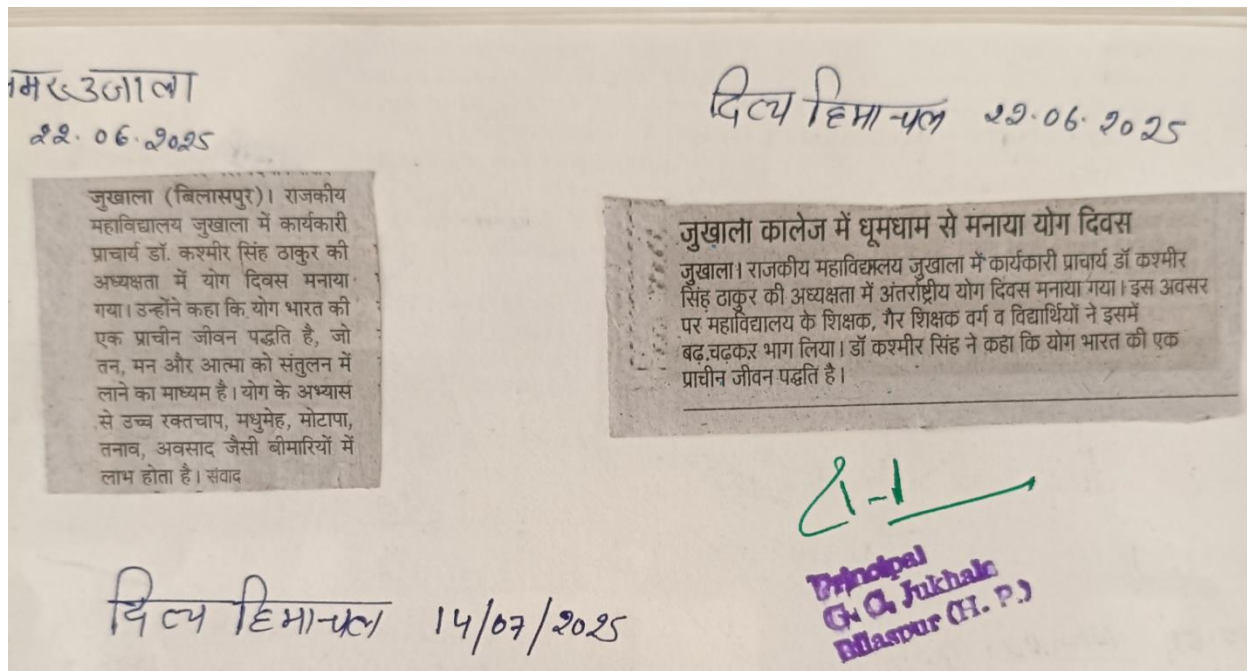 अमर उजाला
22.06.2025
जुखाला (बिलासपुर)। राजकीय
महाविद्यालय जुखाला में कार्यकारी
प्राचार्य डॉ. कश्मीर सिंह ठाकुर की
अध्यक्षता में योग दिवस मनाया
गया। उन्होंने कहा कि योग भारत की
एक प्राचीन जीवन पद्धति है, जो
तन, मन और आत्मा को संतुलन में
लाने का माध्यम है। योग के अभ्यास
से उच्च रक्तचाप, मधुमेह, मोटापा,
तनाव, अवसाद जैसी बीमारियों में
लाभ होता है। संवाद
दिव्य हिमाचल 22.06.2025
जुखाला कालेज में धूमधाम से मनाया योग दिवस
जुखाला। राजकीय महाविद्यालय जुखाला में कार्यकारी प्राचार्य डॉ कश्मीर
सिंह ठाकुर की अध्यक्षता में अंतर्राष्ट्रीय योग दिवस मनाया गया। इस अवसर
पर महाविद्यालय के शिक्षक, गैर शिक्षक वर्ग व विद्यार्थियों ने इसमें
बढ़.चढ़कर भाग लिया। डॉ कश्मीर सिंह ने कहा कि योग भारत की एक
प्राचीन जीवन पद्धति है।
Principal
G. C. Jukhala
Bilaspur (H. P.)
दिव्य हिमाचल 14/07/2025